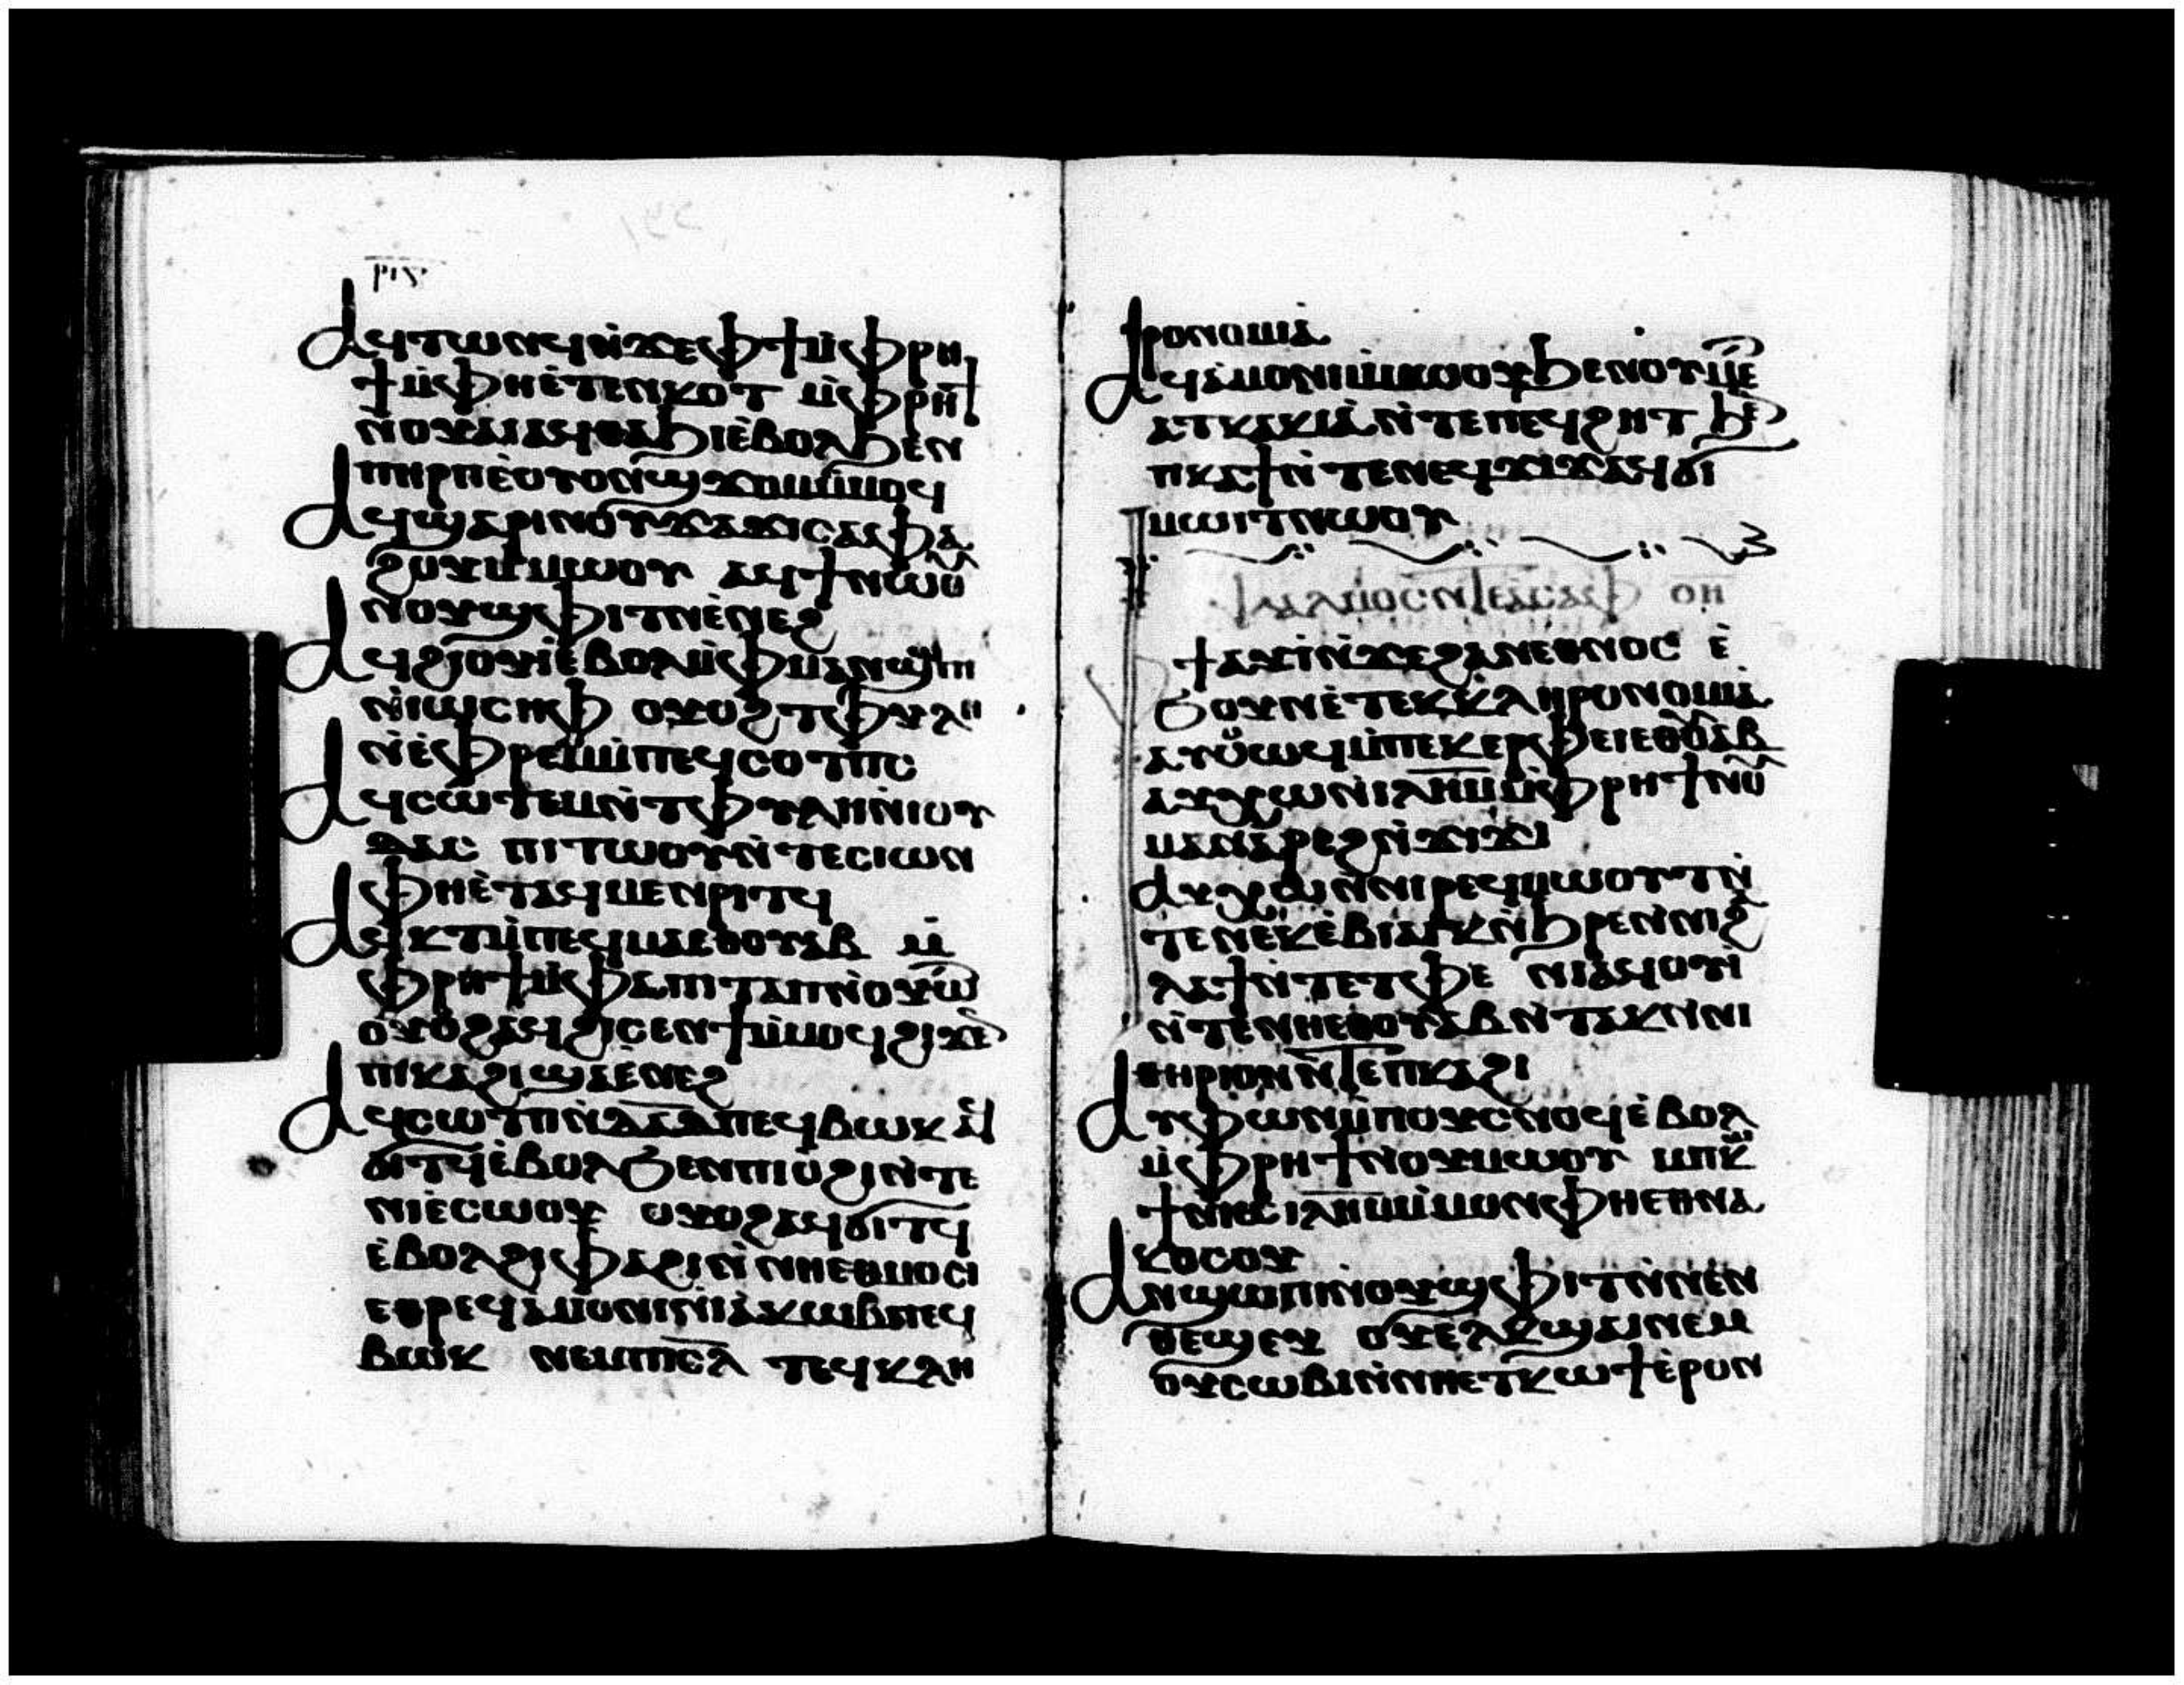 ⲣⲓⲍ
ⲁϥⲧⲱⲛϥⲛ̀ϫⲉⲫϯⲙ̀ⲫⲣⲏ
ϯⲙ̀ⲫⲏⲉ̀ⲧⲉⲛⲕⲟⲧ ⲙ̀ⲫⲣⲏϯ
ⲛⲟⲩⲁⲓ ⲁϥⲑⲁϧⲓⲉ̀ⲃⲟⲗϧⲉⲛ
ⲡⲏⲣⲡⲉ̀ⲟⲩⲟⲛϣϫⲟⲙⲙ̀ⲙⲟϥ
ⲁϥϣⲁⲣⲓⲛⲟⲩϫⲁϫⲓⲥⲁⲫⲁ
ϩⲟⲩⲙ̀ⲙⲱⲟⲩ ⲁϥϯⲛⲱⲟⲩ
ⲛⲟⲩϣⲫⲓⲧⲛⲉ̀ⲛⲉϩ
ⲁϥϩⲓⲟⲩⲓ̀ⲉ̀ⲃⲟⲗⲙ̀ⲫⲙⲁⲛϣⲱⲡⲓ
ⲛ̀ⲓⲱⲥⲏⲫ ⲟⲩⲟϩ ⲧⲫⲩⲗⲏ
ⲛ̀ⲉ̀ⲫⲣⲉⲙⲙ̀ⲡⲉϥⲥⲟⲧⲡⲥ
ⲁϥⲥⲱⲧⲉⲙⲛ̀ⲧⲫⲩⲗⲏⲛ̀ⲓⲟⲩ
ⲇⲁⲥ ⲡⲓⲧⲱⲟⲩⲛ̀ⲧⲉⲥⲓⲱⲛ
ⲫⲏⲉ̀ⲧⲁϥⲙⲉⲛⲣⲓⲧϥ
ⲁϥⲕⲧⲙ̀ⲡⲉϥⲙⲁⲉⲑⲟⲩⲁⲃ ⲙ̀
ⲫⲣⲏϯⲙ̀ⲫⲁⲡⲓⲧⲁⲡⲛ̀ⲟⲩⲱ̀
ⲟⲩⲟϩⲁϥϩⲓⲥⲉⲛϯⲙ̀ⲙⲟϥϩⲓϫⲉⲛ
ⲡⲓⲕⲁϩⲓϣⲁⲉ̀ⲛⲉϩ
ⲁϥⲥⲱⲧⲡⲛ̀ⲇⲁⲇⲡⲉϥⲃⲱⲕ ⲁϥ
ϭⲓⲧϥⲉ̀ⲃⲟⲗϧⲉⲛⲡⲓⲟ̀ϩⲓⲛ̀ⲧⲉ
ⲛⲓⲉ̀ⲥⲱⲟⲩ ⲟⲩⲟϩⲁϥϭⲓⲧϥ
ⲉ̀ⲃⲟⲗϩⲓⲫⲁϩⲓⲛ̀ⲛⲏⲉⲑⲙⲟⲥⲓ
ⲉⲑⲣⲉϥⲁ̀ⲙⲟⲛⲓⲛ̀ⲓⲁⲕⲱⲃⲡⲉϥ
ⲃⲱⲕ ⲛⲉⲙⲡⲓⲥ̅ⲗ̅ ⲧⲉϥⲕⲗⲏ
ⲣⲟⲛⲟⲙⲓⲁ̀
ⲁϥⲁ̀ⲙⲟⲛⲓⲙ̀ⲙⲱⲟⲩϧⲉⲛⲟⲩⲙⲉⲧ
ⲁⲧⲕⲁⲕⲓⲁ̀ⲛ̀ⲧⲉⲡⲉϥϩⲏⲧ ϧⲉⲛ
ⲡⲕⲁϯⲛ̀ⲧⲉⲛⲉϥϫⲓϫⲁϥϭⲓ
ⲙⲱⲓⲧⲛⲱⲟⲩ
ⲯⲁⲗⲙⲟⲥⲛ̀ⲧⲉⲁ̀ⲥⲁⲫ ⲟⲏ
ⲫϯⲁⲩⲓ̀ⲛ̀ϫⲉϩⲁⲛⲉⲑⲛⲟⲥ ⲉ̀
ϧⲟⲩⲛⲉ̀ⲧⲉⲕⲕⲗⲏⲣⲟⲛⲟⲙⲓⲁ̀
ⲁⲩⲥⲱϥⲙ̀ⲡⲉⲕⲉⲣⲫⲉⲓⲉⲑⲟⲩⲁⲃ
ⲁⲩⲭⲱⲛ̀ⲓⲗⲏⲙⲙ̀ⲫⲣⲏϯⲛⲟⲩ
ⲙⲁⲛⲁ̀ⲣⲉϩⲛ̀ϫⲓϫⲓ
ⲁⲩⲭⲱⲛ̀ⲛⲓⲣⲉϥⲙⲱⲟⲩⲧⲛ̀
ⲧⲉⲛⲉⲕⲉ̀ⲃⲓⲁⲓⲕⲛ̀ϧⲣⲉⲛ̀ⲛⲓϩ
ⲗⲁϯⲛ̀ⲧⲉⲧⲫⲉ ⲛⲓⲁϥⲟⲩⲓ
ⲛ̀ⲧⲉⲛⲏⲉⲑⲟⲩⲁⲃⲛ̀ⲧⲁⲕⲛ̀ⲛⲓ
ⲑⲏⲣⲓⲟⲛⲛ̀ⲧⲉⲡⲕⲁϩⲓ
ⲁⲩⲫⲱⲛⲙ̀ⲡⲟⲩⲥⲛⲟϥⲉ̀ⲃⲟⲗ
ⲙ̀ⲫⲣⲏϯⲛⲟⲩⲙⲱⲟⲩ ⲙⲡⲕⲱ
ϯⲛ̀ⲧⲉⲓⲗⲏⲙⲙ̀ⲙⲟⲛⲫⲏⲉⲑⲛⲁ
ⲕⲟⲥⲟⲩ
ⲁⲛϣⲱⲡⲓⲛ̀ⲟⲩϣⲫⲓⲧⲛ̀ⲛⲉⲛ
ⲑⲉϣⲉⲩ ⲟⲩⲉⲗⲕϣⲁⲓⲛⲉⲙ
ⲟⲩⲥⲱⲃⲓⲛ̀ⲛⲏⲉⲧⲕⲱϯⲉ̀ⲣⲟⲛ